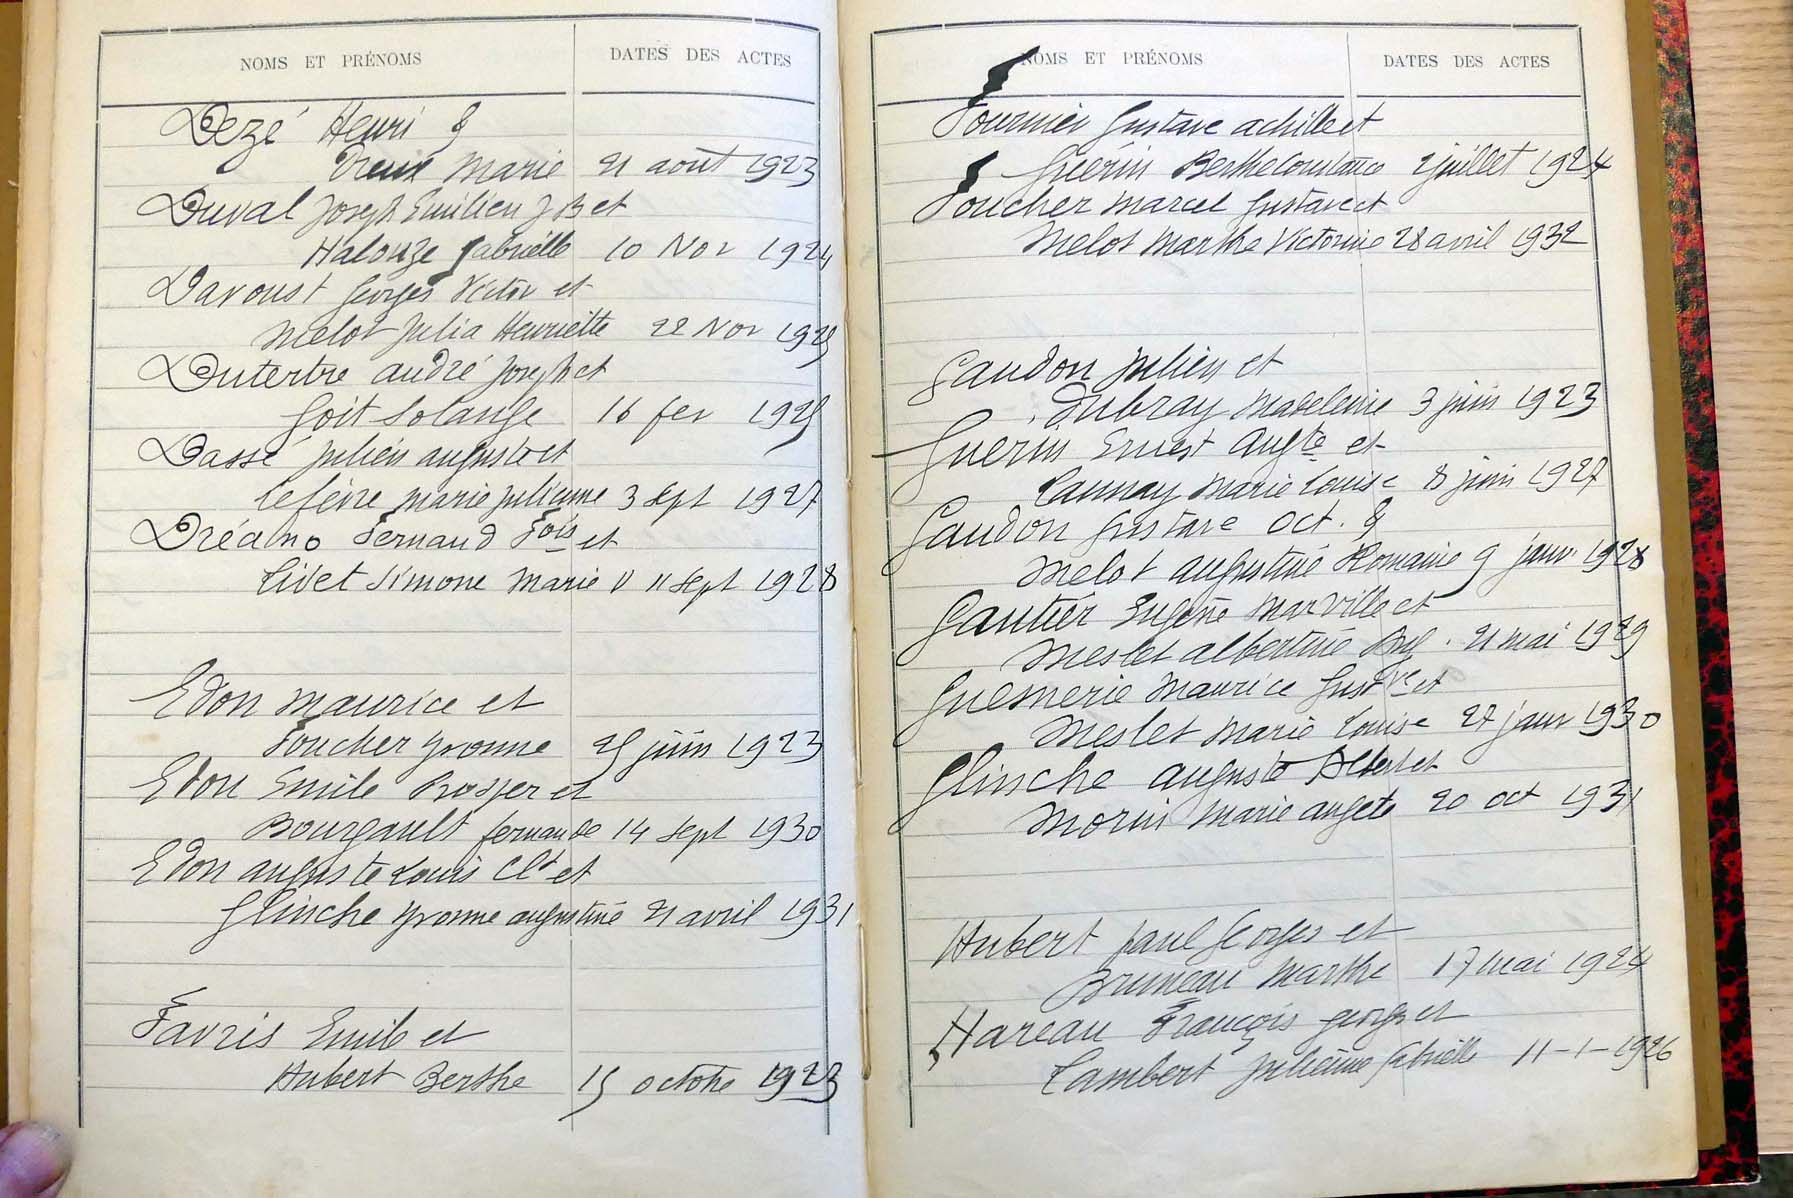 NOMS ET PRÉNOMS DATES DES ACTES
Dezé Henri &
Vieux Marie 21 août 1923
Duval Joseph Emilien JB et
Halouze Gabrielle 10 Nov 1924
Davoust Georges Victor et
Melot Julia Henriette 22 Nov 1925
Dutertre André Joseph et
Goit Solange 16 fev 1925
Dassé Julien Auguste et
Lefèvre Marie Julienne 3 Sept 1927
Dréano Fernand Fois et
Livet Simone Marie V 11 Sept 1928
Edon Maurice et
Foucher Yvonne 25 juin 1923
Edon Emile Prosper et
Bourgault Fernande 14 Sept 1930
Edon Auguste Louis Clt et
Glinche Yvonne Augustine 21 avril 1931
Favris Emile et
Hubert Berthe 15 octobre 1923
NOMS ET PRÉNOMS DATES DES ACTES
Fournier Gustave Achille et
Guérin Berthe Constance 2 juillet 1924
Foucher Marcel Gustave et
Melot Marthe Victorine 28 avril 1932
Gaudon Julien et
Dubray Madeleine 3 juin 1923
Guerin Ernest Augte et
Launay Marie Louise 8 juin 1927
Gaudon Gustave Oct. &
Melot Augustine Romaine 9 janv. 1928
Gautier Eugène Marville et
Meslet Albertine 21 mai 1929
Guesnerie Maurice Gustve et
Meslet Marie Louise 27 janv 1930
Glinche Auguste Albert et
Morin Marie Angele 20 oct 1931
Hubert Paul Georges et
Bruneau Marthe 17 mai 1924
Hareau François Georges et
Lambert Julienne Gabrielle 11-1-1926